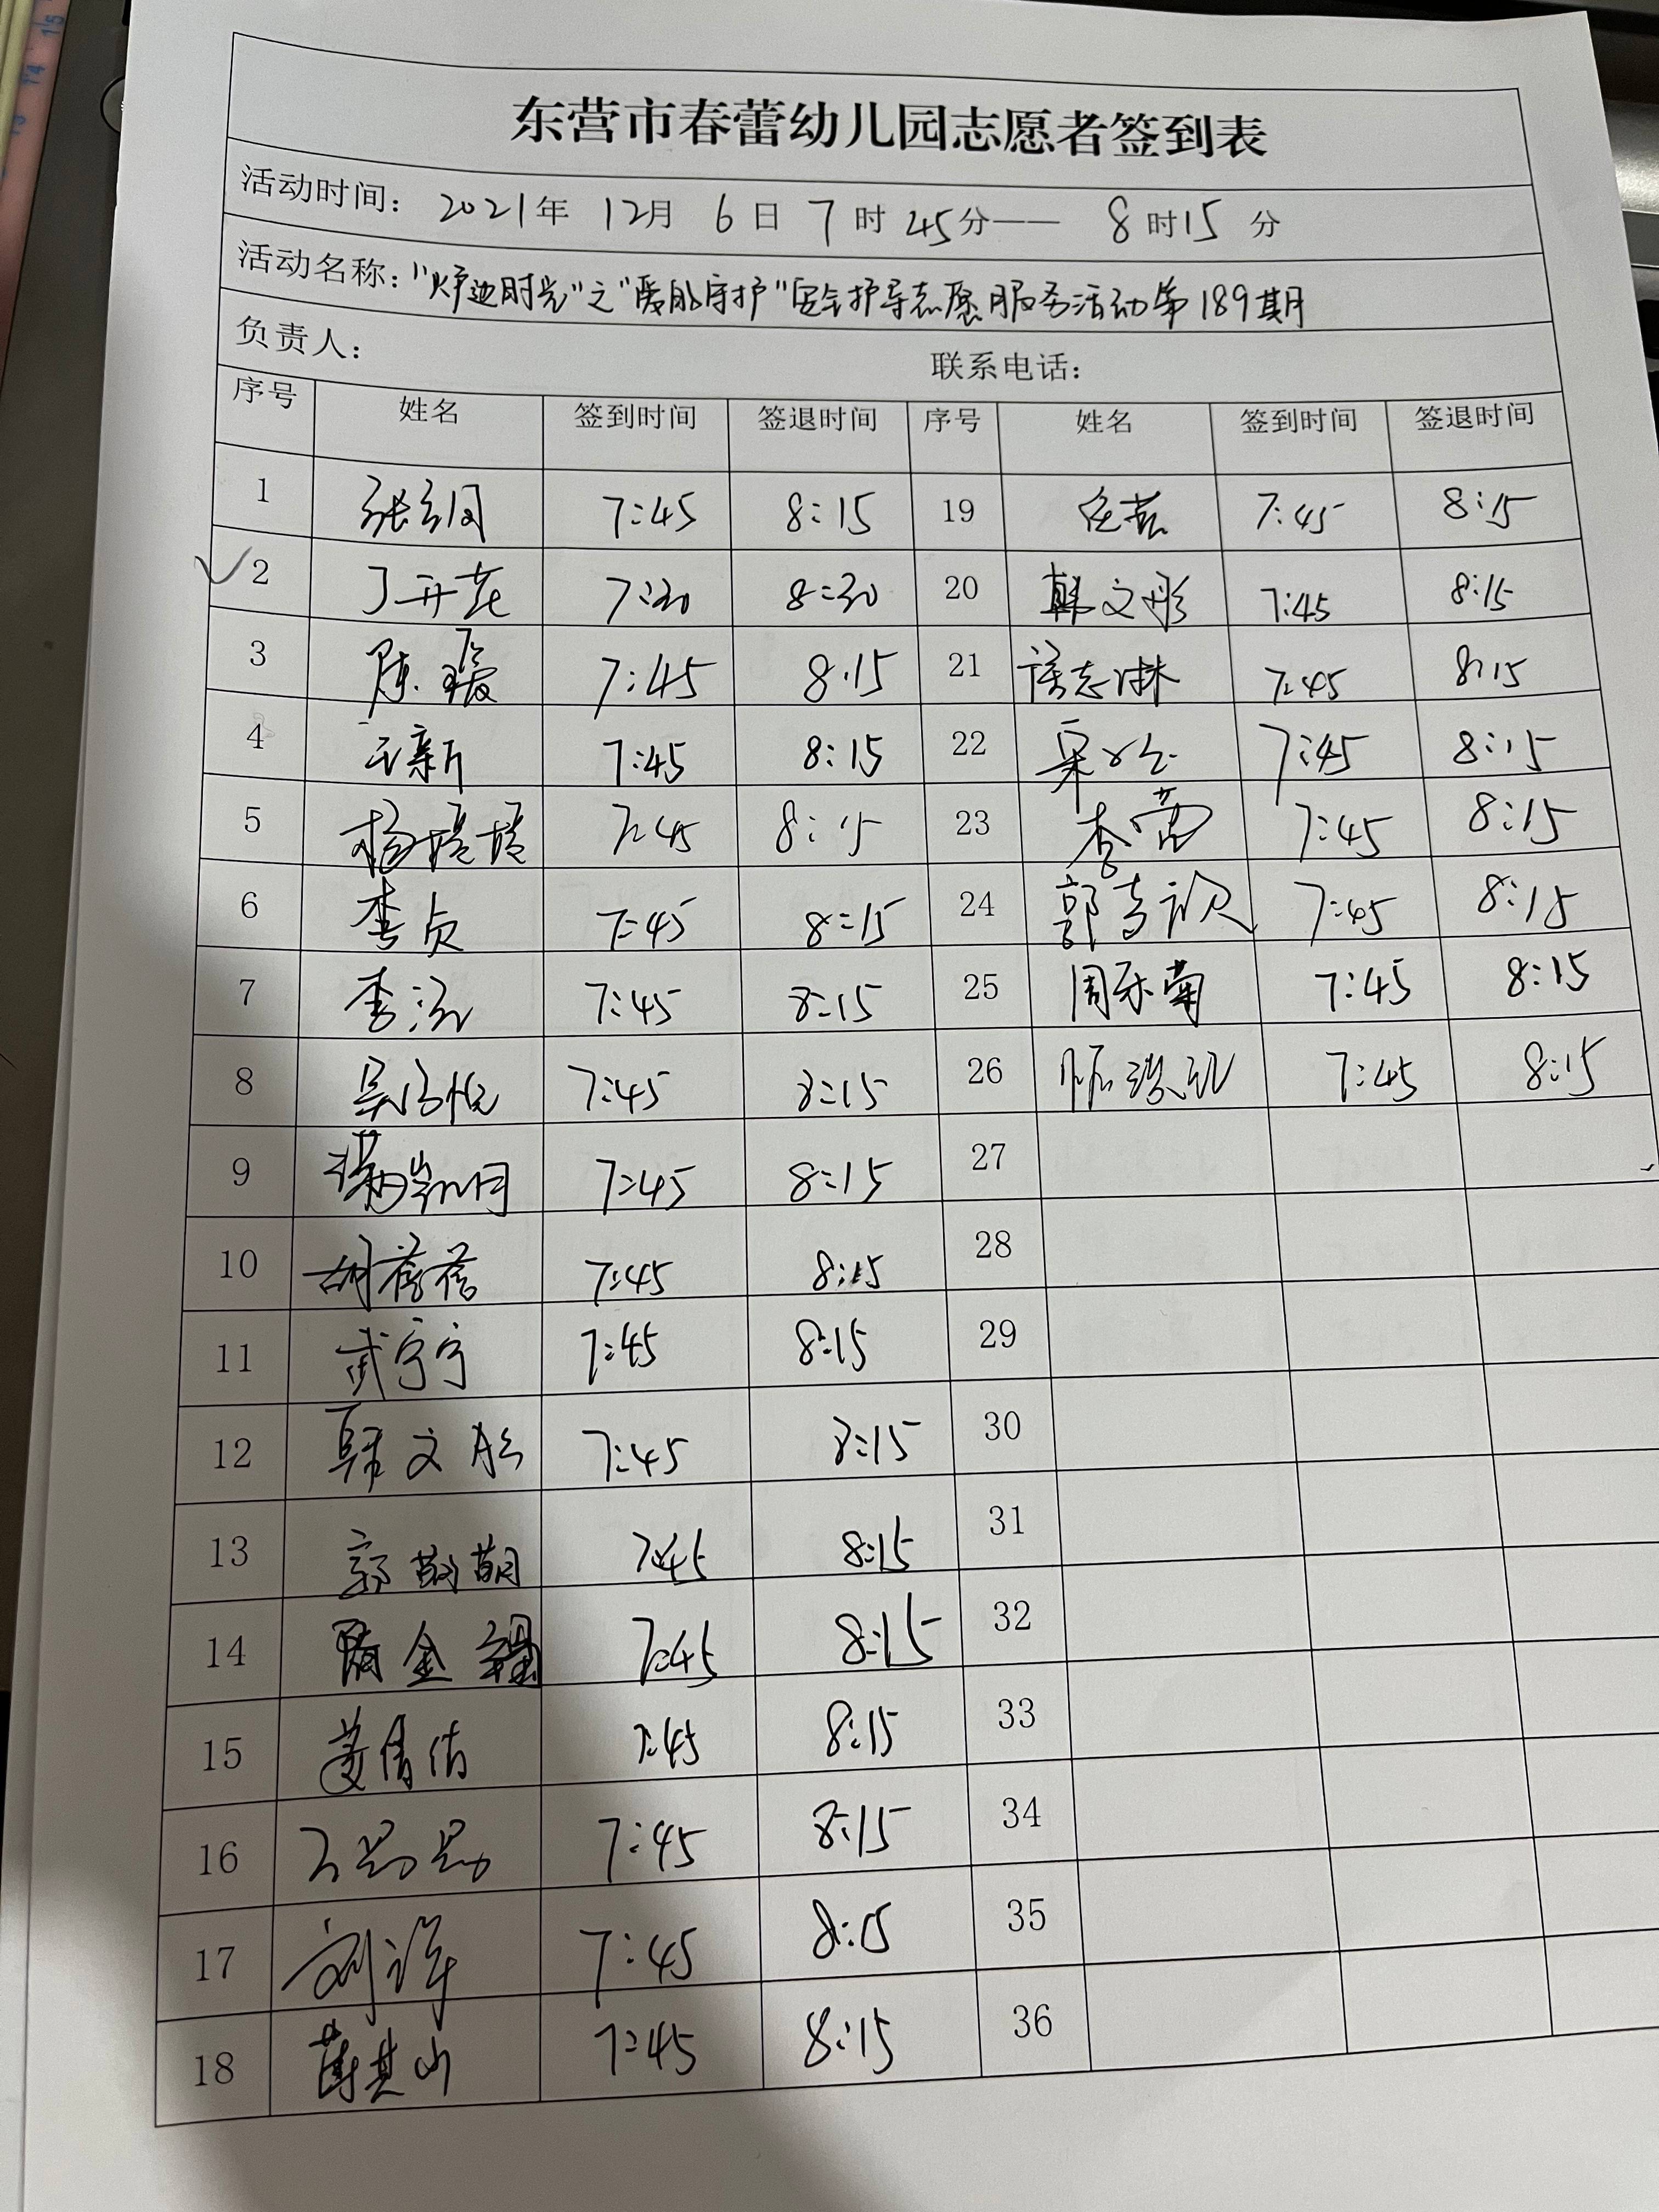 东营市春蕾幼儿园志愿者签到表
活动时间: 2021年 12月 6日 7时 45分—— 8时15分
活动名称:"炉边时光"之"暖航守护"安全护导志愿服务活动第189期
负责人: 联系电话:
序号 姓名 签到时间 签退时间 序号 姓名 签到时间 签退时间
1 7:45 8:15 19 任燕 7:45 8:15
2 丁开花 7:30 8:30 20 韩文彤 7:45 8:15
3 陈瑗 7:45 8:15 21 侯志琳 7:45 8:15
4 王新 7:45 8:15 22 7:45 8:15
5 杨培培 7:45 8:15 23 李蕾 7:45 8:15
6 李贞 7:45 8:15 24 7:45 8:15
7 李泓 7:45 8:15 25 周乐菊 7:45 8:15
8 7:45 8:15 26 7:45 8:15
9 7:45 8:15 27
10 胡蓓蓓 7:45 8:15 28
11 武宁宁 7:45 8:15 29
12 韩文彤 7:45 8:15 30
13 7:45 8:15 31
14 隋金 7:45 8:15 32
15 姜倩倩 7:45 8:15 33
16 7:45 8:15 34
17 刘洋 7:45 8:15 35
18 薄其山 7:45 8:15 36